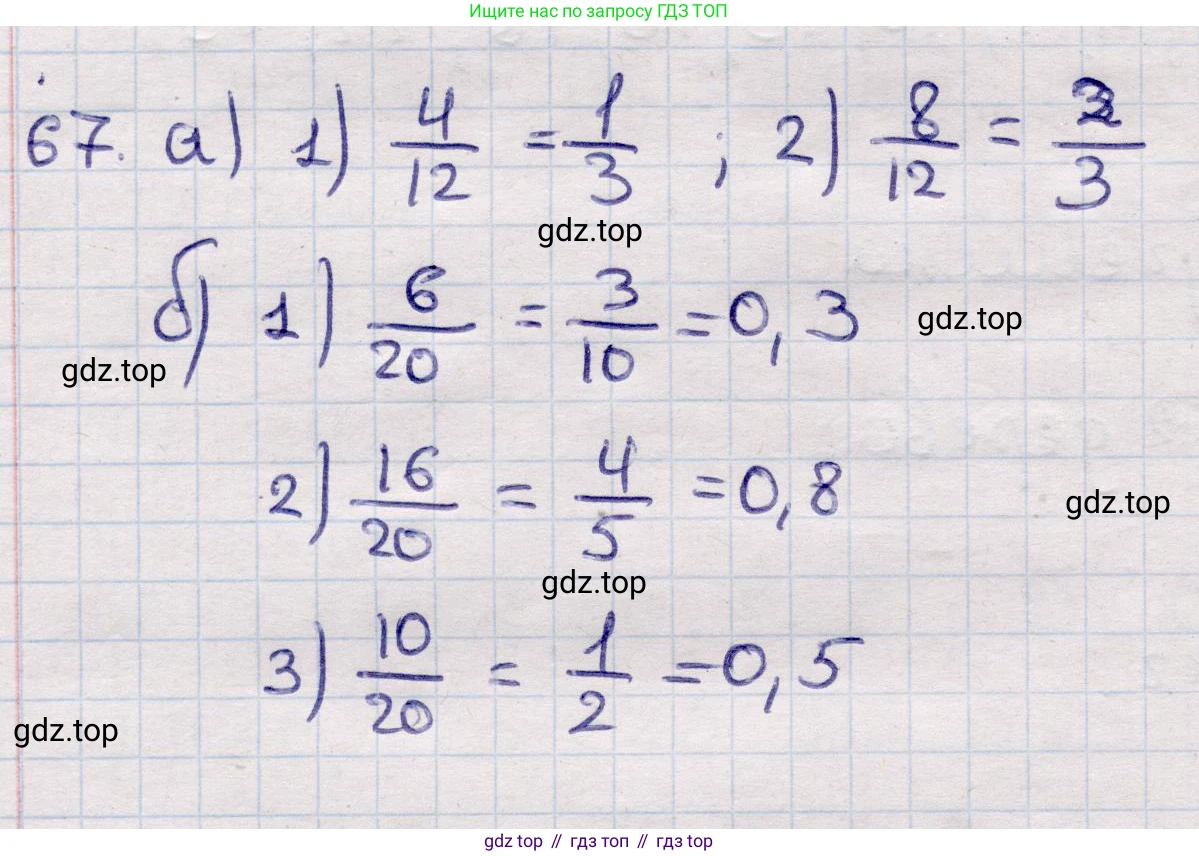 Ищите нас по запросу ГДЗ ТОП
67. а) 1) 4/12 = 1/3 ; 2) 8/12 = 2/3
gdz.top
б) 1) 6/20 = 3/10 = 0,3
gdz.top
gdz.top
2) 16/20 = 4/5 = 0,8
gdz.top
gdz.top
3) 10/20 = 1/2 = 0,5
gdz.top
gdz top // гдз топ // гдз top